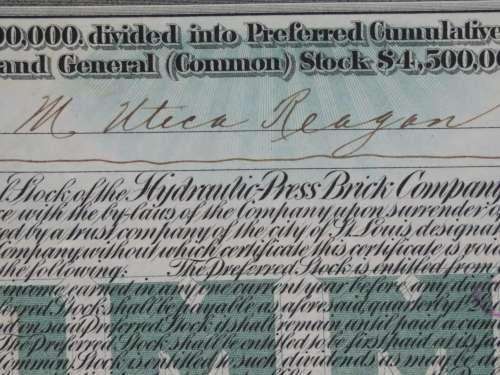 00,000, divided into Preferred Cumulative
and General (Common) Stock $4,500,00
M Utica Reagan
l Stock of the Hydraulic-Press Brick Company
ce with the by-laws of the Company upon surrender
ed by a trust company of the city of St. Louis designat
Company, without which certificate this certificate is voi
the following: The Preferred Stock is entitled from
in any one current year before any di
erred Stock shall be payable as aforesaid, quarterly
on said Preferred Stock it shall remain until paid a cum
The Preferred Stock shall be entitled to be first paid at its fa
Common Stock is entitled to such dividends as may be de
OMM